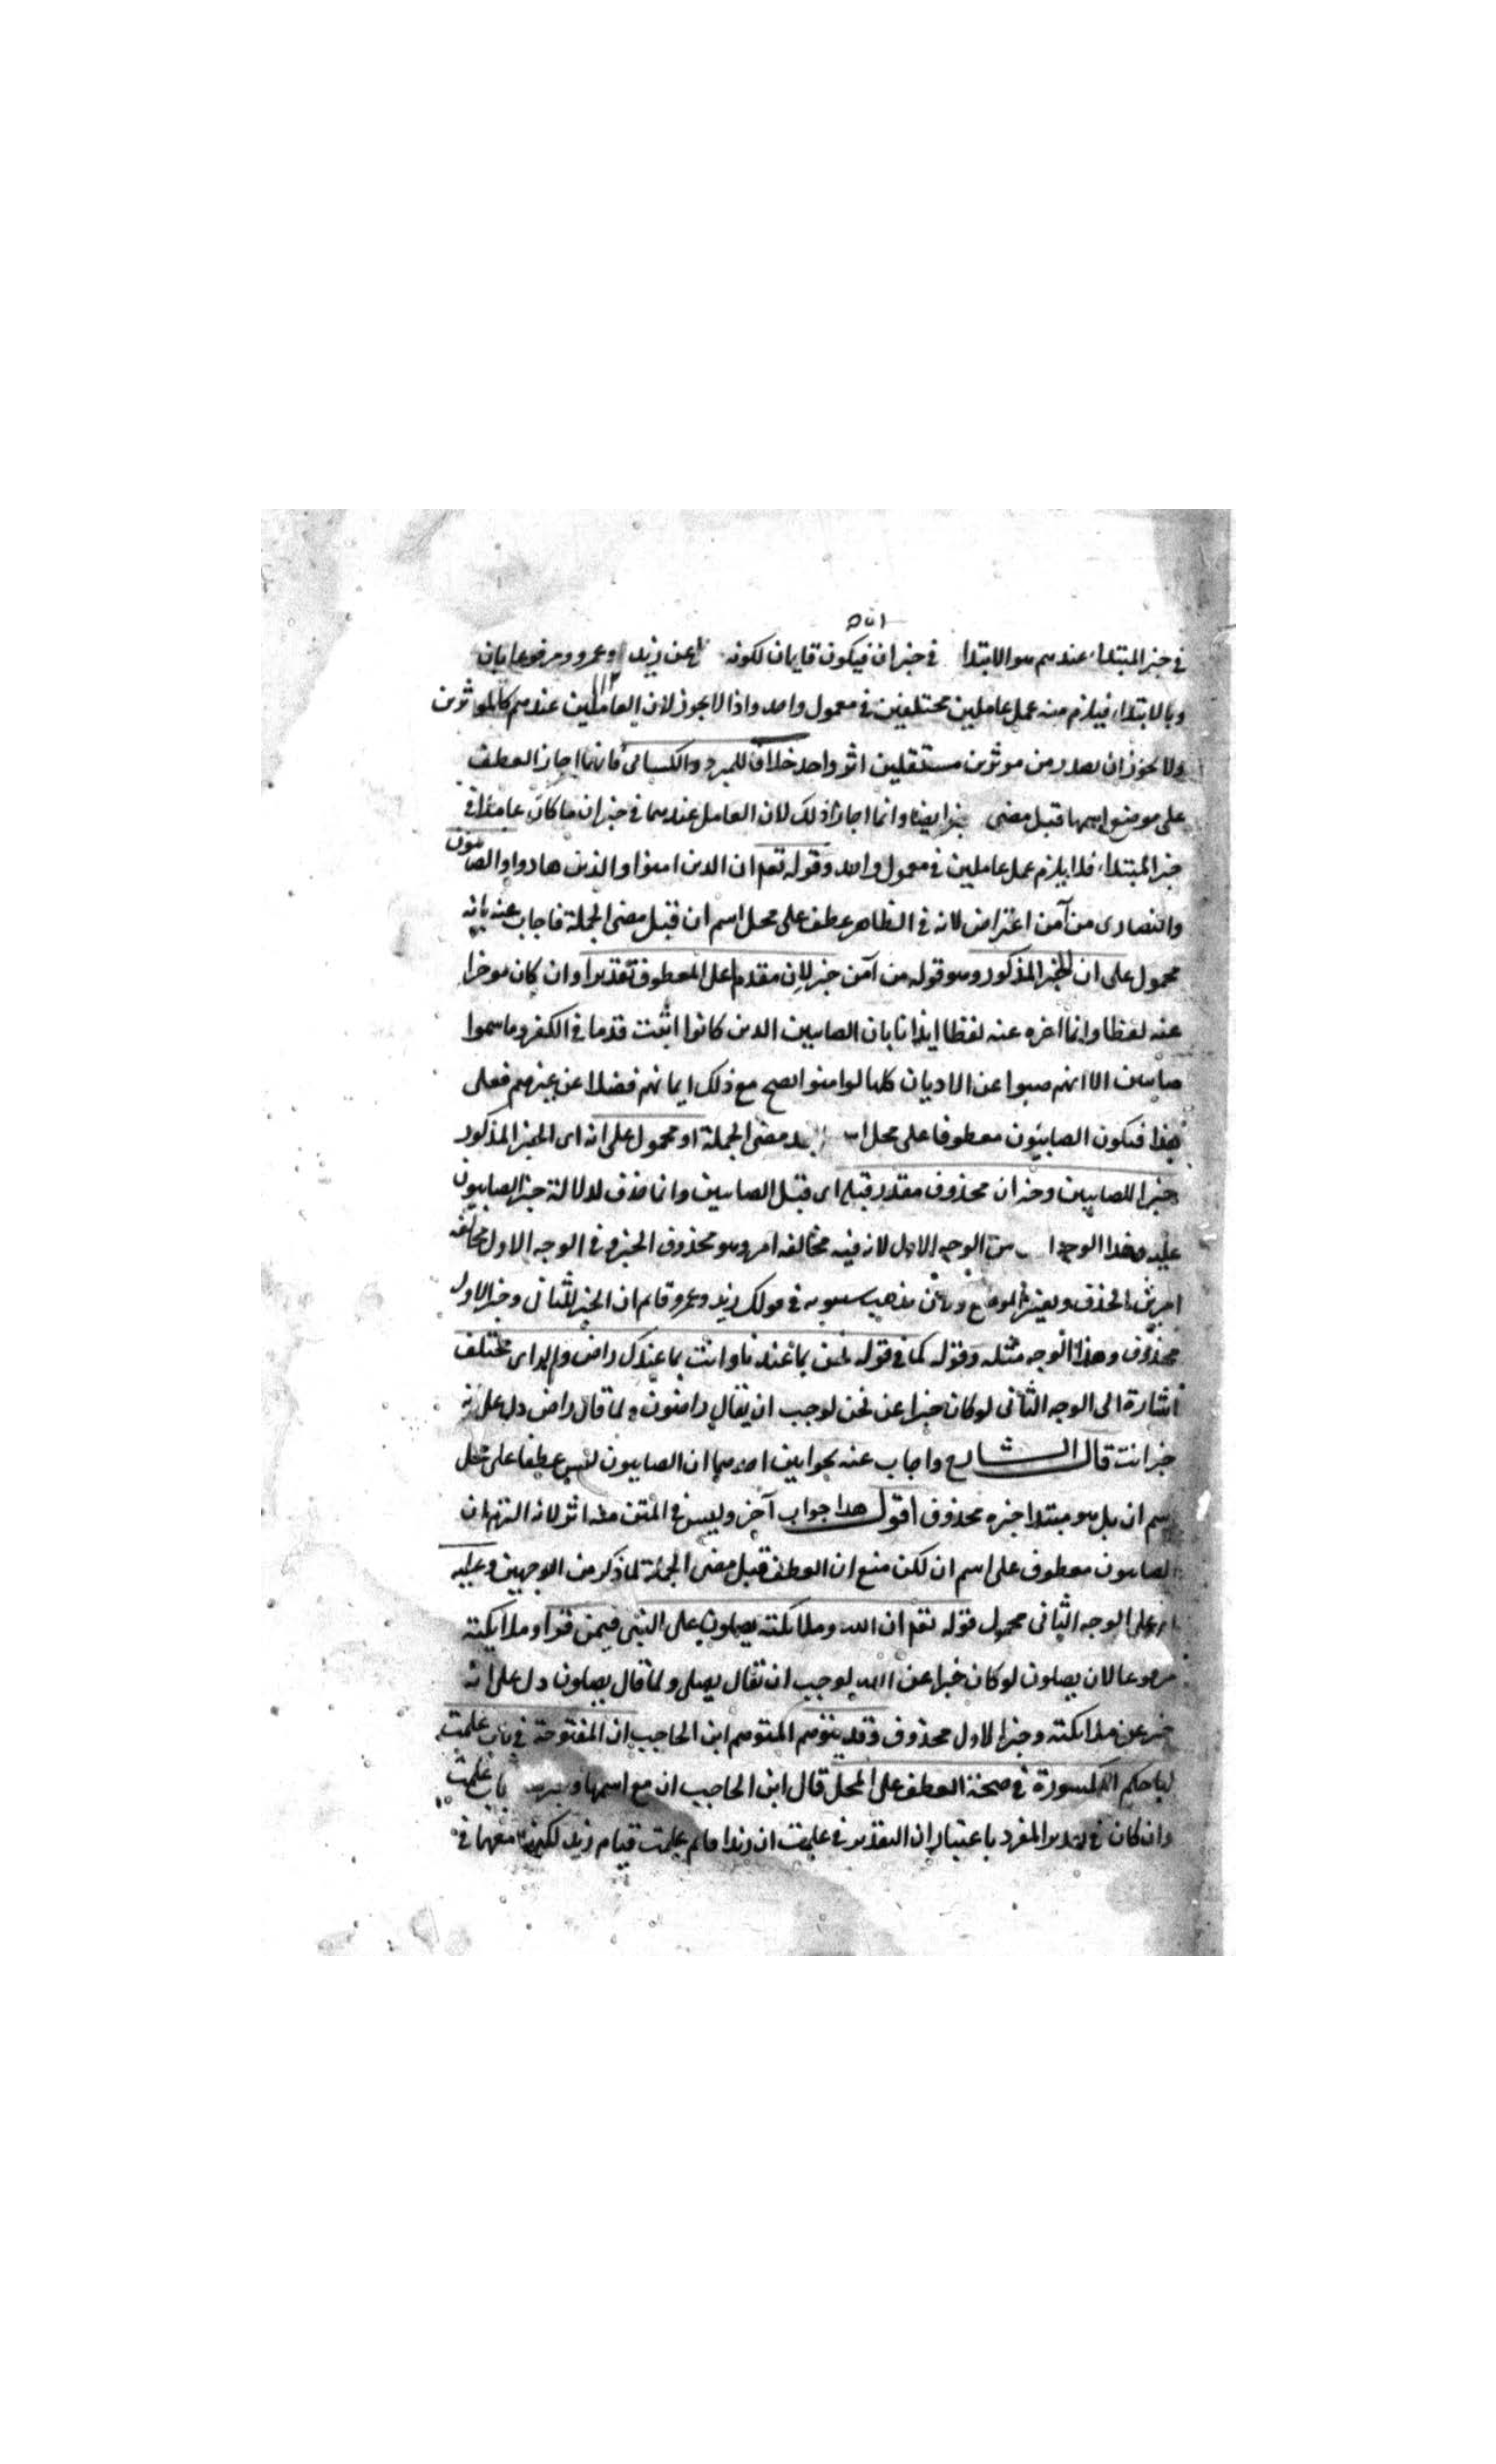 في خبر المبتداء عندهم هو الابتدا في خبر ان فيكون قايمان لكونه عن زيد وعمرو مرفوعا بان
وبالابتداء فيلزم منه عمل عاملين مختلفين في معمول واحد واذا لا يجوز لان العاملين عندهم كالموثرين
ولا يجوز ان يصدر من موثرين مستقلين اثر واحد خلافا للمبرد والكسائى فانهما اجازا العطف
على موضع اسمها قبل مضى خبر ايضا وانما اجازا ذلك لان العامل عندهما في خبر ان ما كان عاملا في
خبر المبتداء فلا يلزم عمل عاملين في معمول واحد وقوله تعم ان الذين امنوا والذين هادوا والصابئون
والنصارى من آمن اعتراض لانه في الظاهر عطف على محل اسم ان قبل مضى الجملة فاجاب عنه بانه
محمول على ان الخبر المذكور وهو قوله من آمن خبر لان مقدم على المعطوف تقديرا وان كان موخرا
عنه لفظا وانما اخره عنه لفظا ايذانا بان الصابيين الذين كانوا اثبت قدما في الكفر وما سموا
صابيين الا انهم صبوا عن الاديان كلها لو امنوا لصح مع ذلك ايمانهم فضلا عن غيرهم فعلى
هذا فيكون الصابئون معطوفا على محل بعد مضى الجملة او محمول على انه اى الخبر المذكور
خبر للصابيين وخبر ان محذوف مقدر قبله اى قبل الصابيين وانما حذف لدلالة خبر الصابيون
عليه وهذا الوجه من الوجه الاول لانه فيه مخالفة امر وهو محذوف الخبر وفي الوجه الاول مخالفة
امرين الحذف وتغيير الموضع ولان مذهب سيبويه في قولك زيد وعمرو قايم ان الخبر للثانى وخبر الاول
محذوف وهذا الوجه مثله وقوله كما في قوله نحن بما عندنا وانت بما عندك راض والراى مختلف
اشارة الى الوجه الثانى لو كان خبرا عن نحن لوجب ان يقال راضون ولما قال راض دل على انه
خبر انت قال الشارح واجاب عنه بجوابين احدهما ان الصابيون ليس عطفا على محل
اسم ان بل هو مبتدا خبره محذوف اقول هذا جواب آخر وليس في المتن منه اثر لانه التزم ان
الصابيون معطوف على اسم ان لكن منع ان العطف قبل مضى الجملة لما ذكر من الوجهين وعليه
اى وعلى الوجه الثانى محمول قوله تعم ان الله وملائكته يصلون على النبى فيمن قرا وملائكته
مرفوعا لان يصلون لو كان خبرا عن الله لوجب ان يقال يصلى ولما قال يصلون دل على انه
خبر عن ملائكته وخبر الاول محذوف وقد يتوهم المتوهم ابن الحاجب ان المفتوحة في باب علمت
لها حكم المكسورة في صحة العطف على المحل قال ابن الحاجب ان مع اسمها وخبرها باب علمت
وان كان في تقدير المفرد باعتبار ان التقدير في علمت ان زيدا قايم علمت قيام زيد لكنها معها في